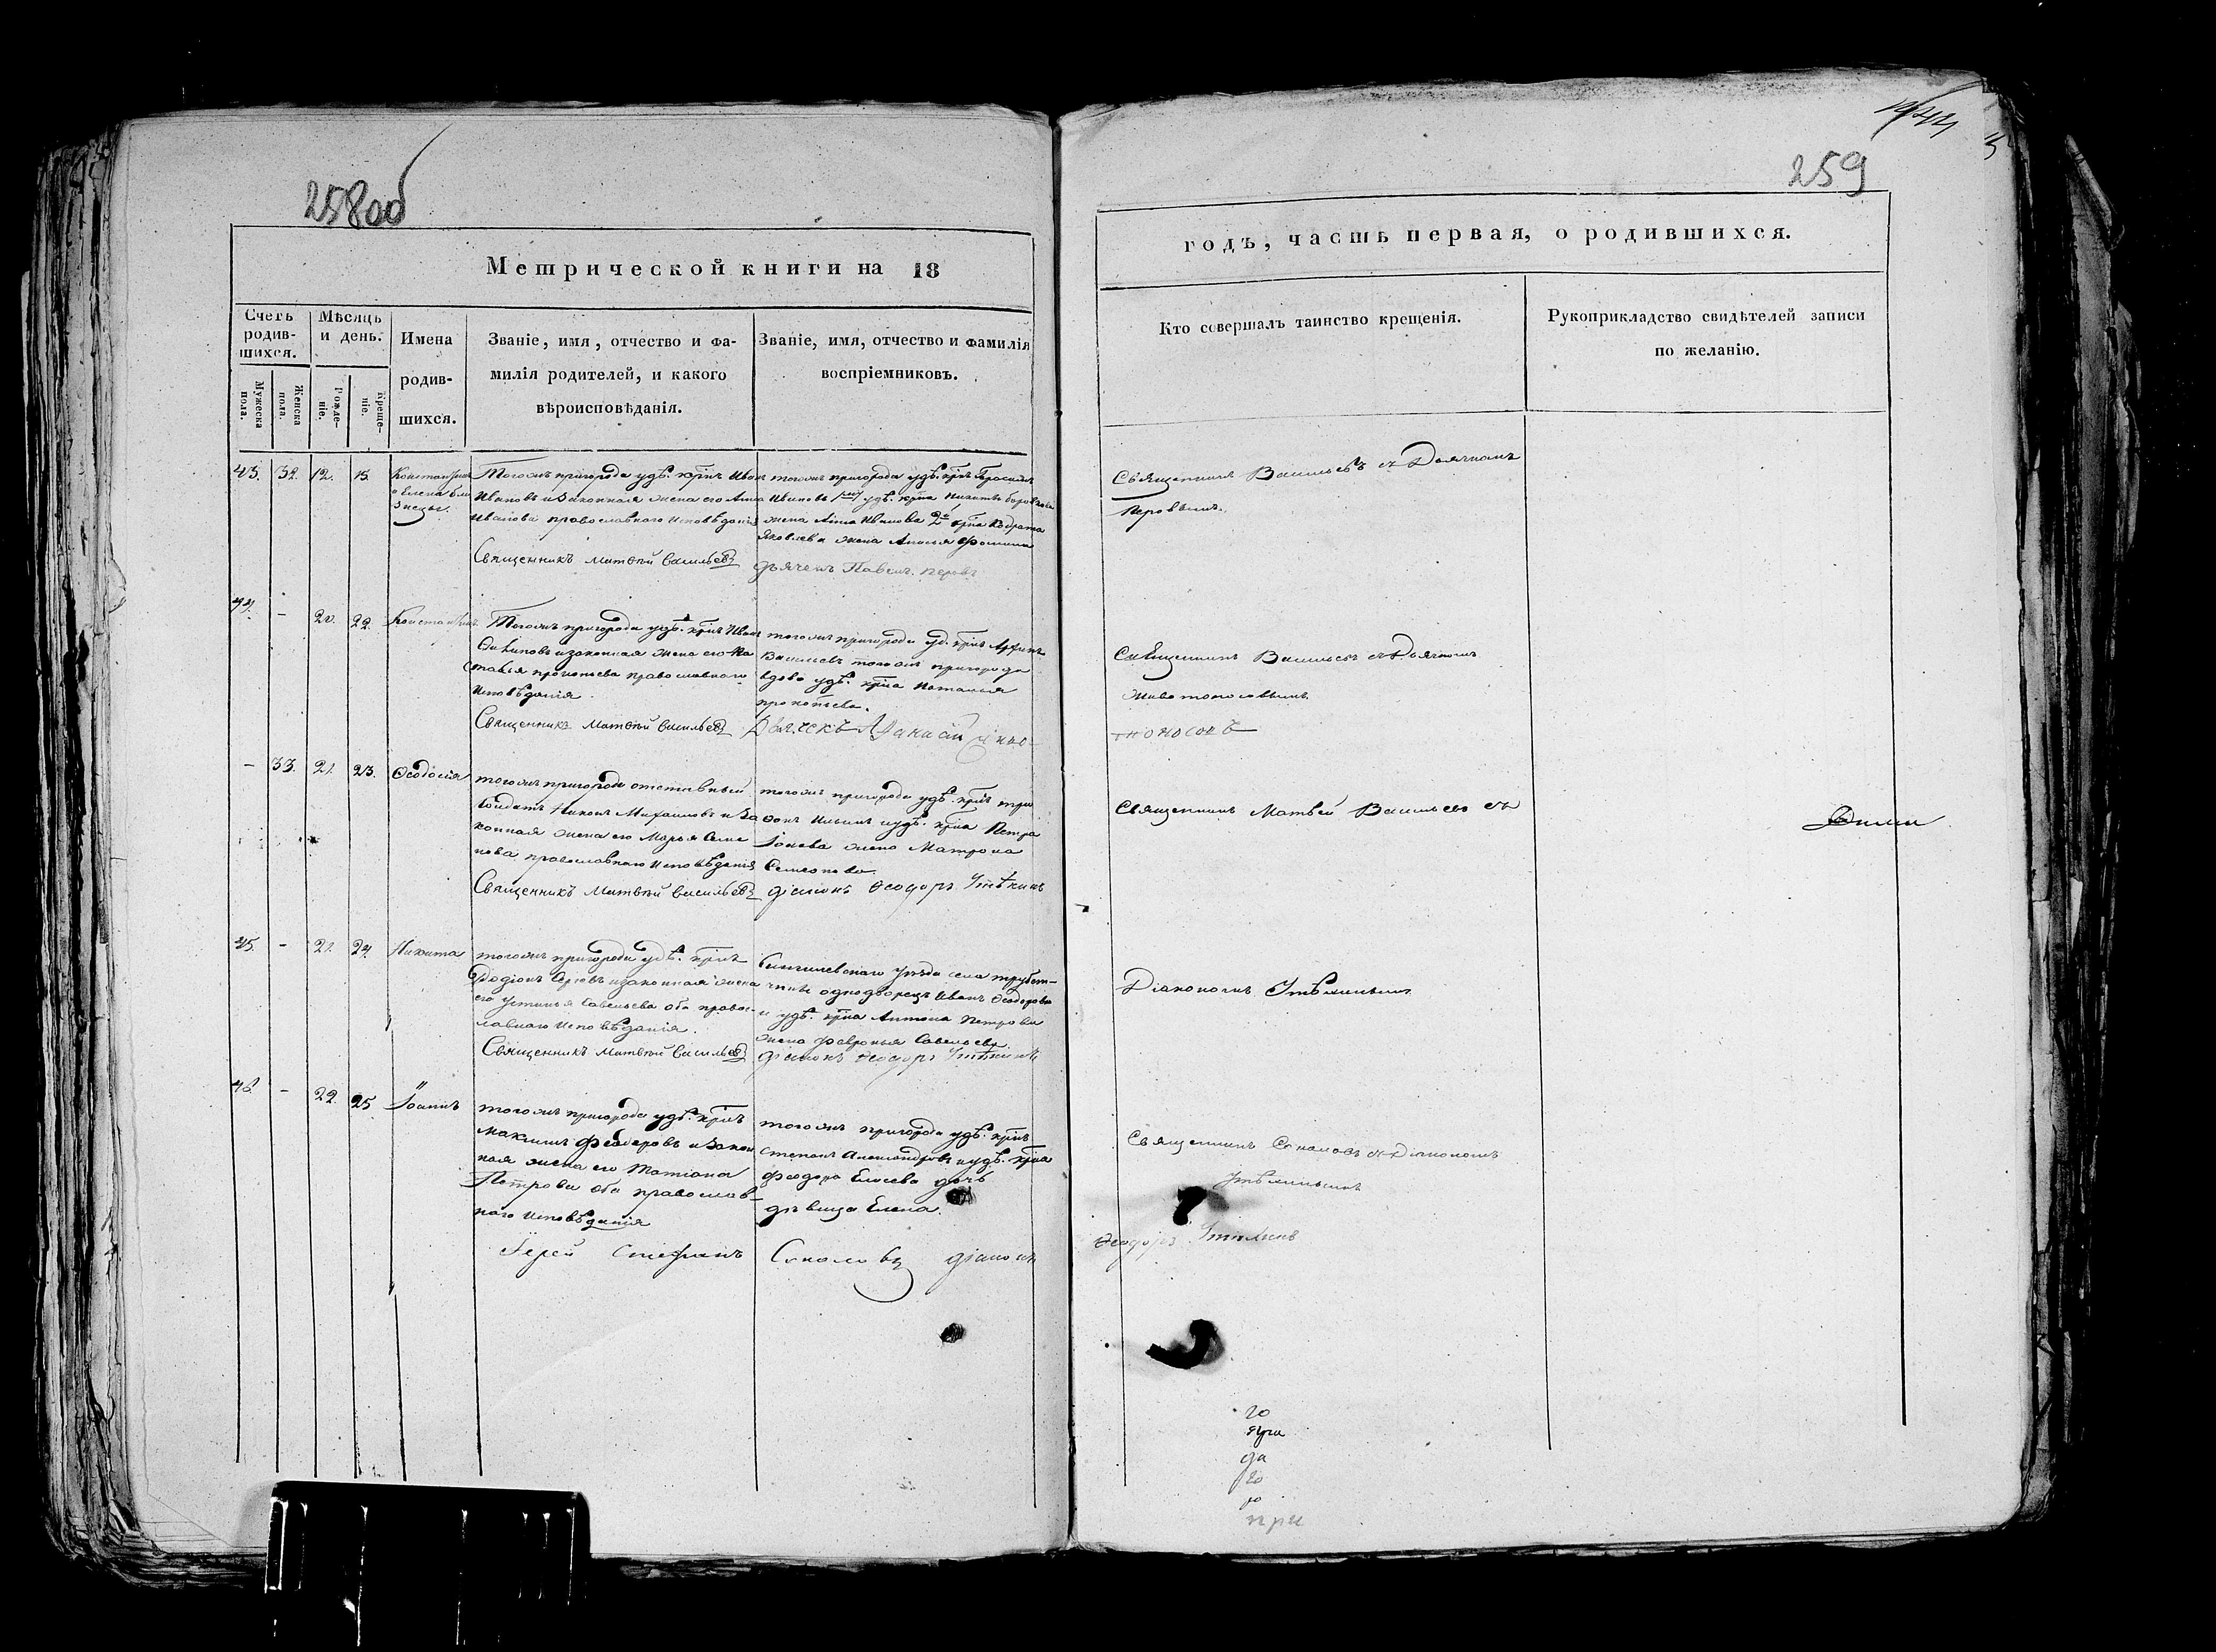 258об
Метрической книги на 18
Счетъ родив-шихся.
Мужеска пола.
Женска пола.
Мѣсяцъ и день.
Рожде-ніе.
Креще-ніе.
Имена родив-шихся.
Званіе, имя, отчество и фа-
милія родителей, и какого
вѣроисповѣданія.
Званіе, имя, отчество и фамилія
воспріемниковъ.
43. 32. 12. 13.
Константинъ
и Елена бли
знецы.
Тогожъ пригорода удѣ. крнъ Иванъ
Ивановъ и Законная жена его Анна
Иванова православнаго исповѣданія
Священникъ Матвѣй Васильевъ
тогожъ пригорода удѣ. крнъ Герасимъ
Ивановъ удѣ. крна Никиты
жена Анна Иванова 2й крна Кодрата
Яковлева жена Анисья Фомина
дьячекъ Павелъ Перовъ
44. - 20. 22. Константинъ
Тогожъ пригорода удѣ. крнъ Иванъ
Осиповъ и законная жена его На
талья Прокопьева православнаго
исповѣданія.
Священникъ Матвѣй Васильевъ
тогожъ пригорода уд. крнъ Архипъ
Васильевъ тогожъ пригорода
вдова удѣ. крна Наталья
прокопьева.
Дьячекъ
- 33. 21. 23. Ѳеодосія
тогожъ пригорода отставный
солдатъ Никонъ Михаиловъ и За
конная жена его Марья Семе
нова православнаго исповѣданія
Священникъ Матвѣй Васильевъ
тогожъ пригорода удѣ. крнъ Три
фонъ Ильинъ и удѣ. крна Петра
Іонева жена Матрона
Семенова
діаконъ Ѳеодоръ Утѣхинъ
45. - 21. 24. Никита
тогожъ пригорода удѣ. крнъ
Родіонъ Сергѣевъ и законная жена
его Устинья Савельева оба право-
славнаго исповѣданія.
Священникъ Матвѣй Васильевъ
Сингилевскаго уѣзда села трубет-
чины однодворецъ Иванъ Ѳеодоровъ
и удѣ. крна Антона Петрова
жена Февронья Савельева.
діаконъ Ѳеодоръ Утѣхинъ
46. - 22. 25. Іоаннъ
тогожъ пригорода удѣ. крнъ
Максимъ Феодоровъ и Закон
ная жена его Татіана
Петрова оба православ-
наго исповѣданія
тогожъ пригорода удѣ. крнъ
Степанъ Александровъ и удѣ. крна
Феодора Елисеева дочь
дѣвица Елена.
Іерей Стефанъ Соколовъ діаконъ
259
годъ, часть первая, о родившихся.
Кто совершалъ таинство крещенія.
Рукоприкладство свидѣтелей записи
по желанію.
Священникъ Васильевъ съ Дьячкомъ
Перовымъ.
Священникъ Васильевъ съ Дьячкомъ
Священникъ Матвѣй Васильевъ съ
Діакономъ Утѣхинымъ
Священникъ Соколовъ съ Діакономъ
Утѣхинымъ
Ѳеодоръ Утѣхинъ
го
да
го
при